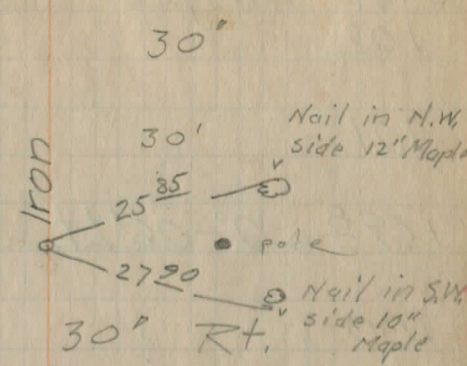 30"
Nail in N.W.
side 12" Maple
30'
Iron
25 85
pole
27 90
Nail in S.W.
side 10"
Maple
30" Rt.